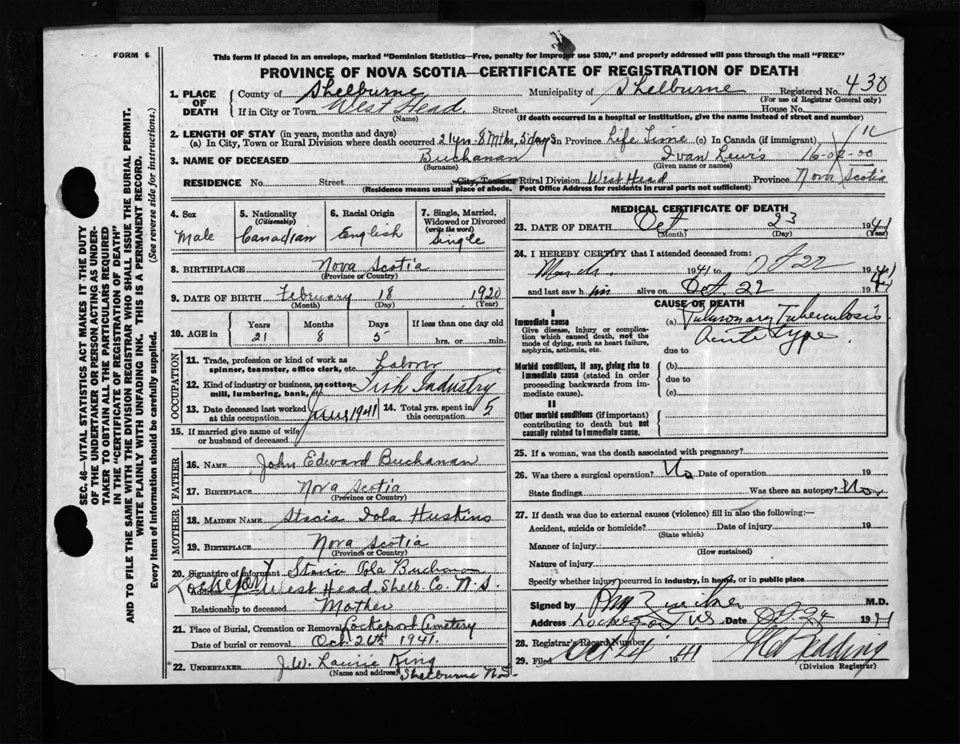 FORM 6
This form if placed in an envelope, marked "Dominion Statistics—Free, penalty for improper use $300," and properly addressed will pass through the mail "FREE"
PROVINCE OF NOVA SCOTIA—CERTIFICATE OF REGISTRATION OF DEATH
SEC. 46—VITAL STATISTICS ACT MAKES IT THE DUTY
OF THE UNDERTAKER OR PERSON ACTING AS UNDER-
TAKER TO OBTAIN ALL THE PARTICULARS REQUIRED
IN THE "CERTIFICATE OF REGISTRATION OF DEATH"
AND TO FILE THE SAME WITH THE DIVISION REGISTRAR WHO SHALL ISSUE THE BURIAL PERMIT.
WRITE PLAINLY WITH UNFADING INK. THIS IS A PERMANENT RECORD.
Every item of information should be carefully supplied. (See reverse side for instructions.)
1. PLACE OF DEATH County of Shelburne Municipality of Shelburne Registered No. 430
(For use of Registrar General only)
If in City or Town West Head. Street House No.
(Name) (If death occurred in a hospital or institution, give the name instead of street and number)
2. LENGTH OF STAY (in years, months and days)
(a) In City, Town or Rural Division where death occurred 21 yrs. 8 Mths, 5 days In Province Life Time (c) In Canada (if immigrant)
3. NAME OF DECEASED Buchanan Ivan Lewis
(Surname) (Given name or names)
RESIDENCE No. Street City, Town or Rural Division West Head Province Nova Scotia
(Residence means usual place of abode. Post Office Address for residents in rural parts not sufficient)
4. Sex Male
5. Nationality (Citizenship) Canadian
6. Racial Origin English
7. Single, Married, Widowed or Divorced (write the word) Single
8. BIRTHPLACE Nova Scotia
(Province or Country)
9. DATE OF BIRTH February 18 1920
(Month) (Day) (Year)
10. AGE in Years Months Days If less than one day old
21 8 5 hrs. or min.
OCCUPATION
11. Trade, profession or kind of work as spinner, teamster, office clerk, etc. Labour
12. Kind of industry or business, as cotton mill, lumbering, bank, etc. Fish Industry
13. Date deceased last worked at this occupation 1941 14. Total yrs. spent in this occupation 5
15. If married give name of wife or husband of deceased
FATHER
16. NAME John Edward Buchanan
17. BIRTHPLACE Nova Scotia
(Province or Country)
MOTHER
18. MAIDEN NAME Stacia Iola Huskins
19. BIRTHPLACE Nova Scotia
(Province or Country)
20. Signature of informant Stacia Iola Buchanan
Address Lockeport West Head Shelb. Co. N.S.
Relationship to deceased Mother
21. Place of Burial, Cremation or Removal Lockeport Cemetery
Date of burial or removal Oct. 26th 1941.
22. UNDERTAKER J.W. Laurie King
(Name and address) Shelburne N.S.
MEDICAL CERTIFICATE OF DEATH
23. DATE OF DEATH Oct 23 1941
(Month) (Day) (Year)
24. I HEREBY CERTIFY that I attended deceased from:
March 1941 to Oct 22 1941
and last saw h im alive on Oct. 22 1941
CAUSE OF DEATH
I
Immediate cause
Give disease, injury or complication which caused death, not the mode of dying, such as heart failure, asphyxia, asthenia, etc.
(a) Pulmonary Tuberculosis
Acute Type.
due to
Morbid conditions, if any, giving rise to immediate cause (stated in order proceeding backwards from immediate cause).
(b)
due to
(c)
II
Other morbid conditions (if important) contributing to death but not causally related to immediate cause.
25. If a woman, was the death associated with pregnancy?
26. Was there a surgical operation? No Date of operation 19
State findings Was there an autopsy? No.
27. If death was due to external causes (violence) fill in also the following:—
Accident, suicide or homicide? Date of injury 19
(State which)
Manner of injury
(How sustained)
Nature of injury
Specify whether injury occurred in industry, in home, or in public place
Signed by M.D.
Address Lockeport N.S. Date Oct 24 1941
28. Registrar's Record Number
29. Filed Oct 24 1941 Redding
(Division Registrar)